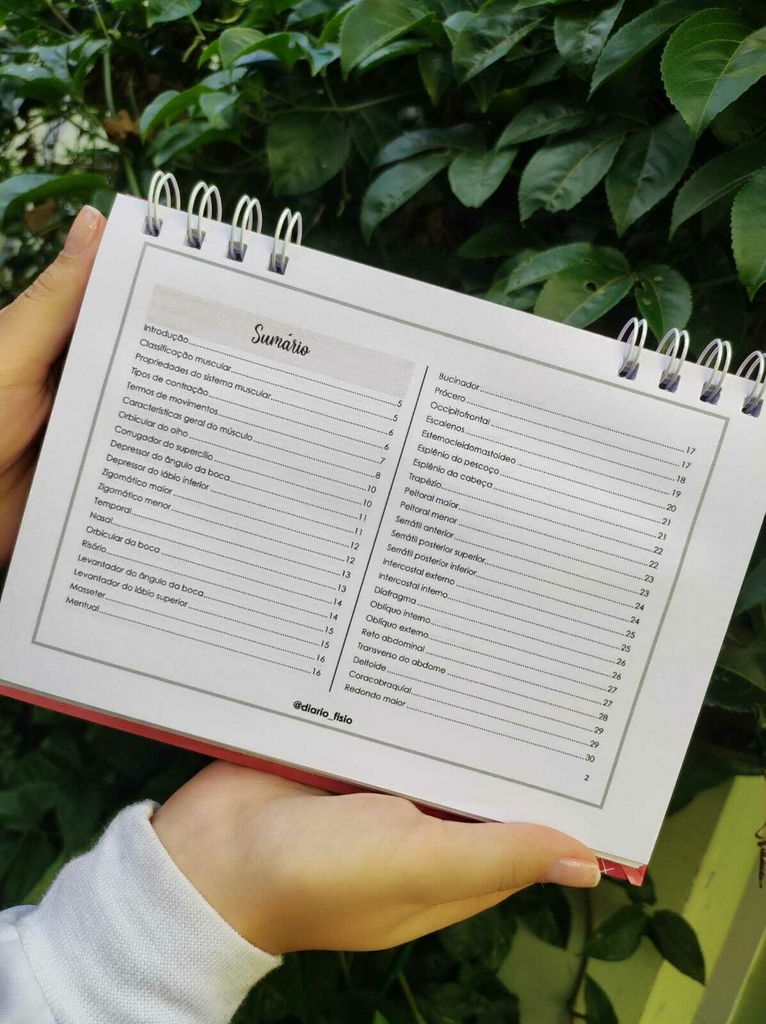 Sumário
Introdução..........5
Classificação muscular..........5
Propriedades do sistema muscular..........6
Tipos de contração..........6
Termos de movimentos..........7
Características geral do músculo..........8
Orbicular do olho..........10
Corrugador do supercílio..........10
Depressor do ângulo da boca..........11
Depressor do lábio inferior..........11
Zigomático maior..........12
Zigomático menor..........12
Temporal..........13
Nasal..........13
Orbicular da boca..........14
Risório..........14
Levantador do ângulo da boca..........15
Levantador do lábio superior..........15
Masseter..........16
Mentual..........16
Bucinador..........17
Prócero..........17
Occipitofrontal..........18
Escalenos..........19
Esternocleidomastoideo..........20
Esplênio do pescoço..........21
Esplênio da cabeça..........21
Trapézio..........22
Peitoral maior..........22
Peitoral menor..........23
Serrátil anterior..........23
Serrátil posterior superior..........24
Serrátil posterior inferior..........24
Intercostal externo..........25
Intercostal interno..........25
Diafragma..........26
Oblíquo interno..........26
Oblíquo externo..........27
Reto abdominal..........27
Transverso do abdome..........28
Deltoide..........29
Coracobraquial..........29
Redondo maior..........30
@diario_fisio
2